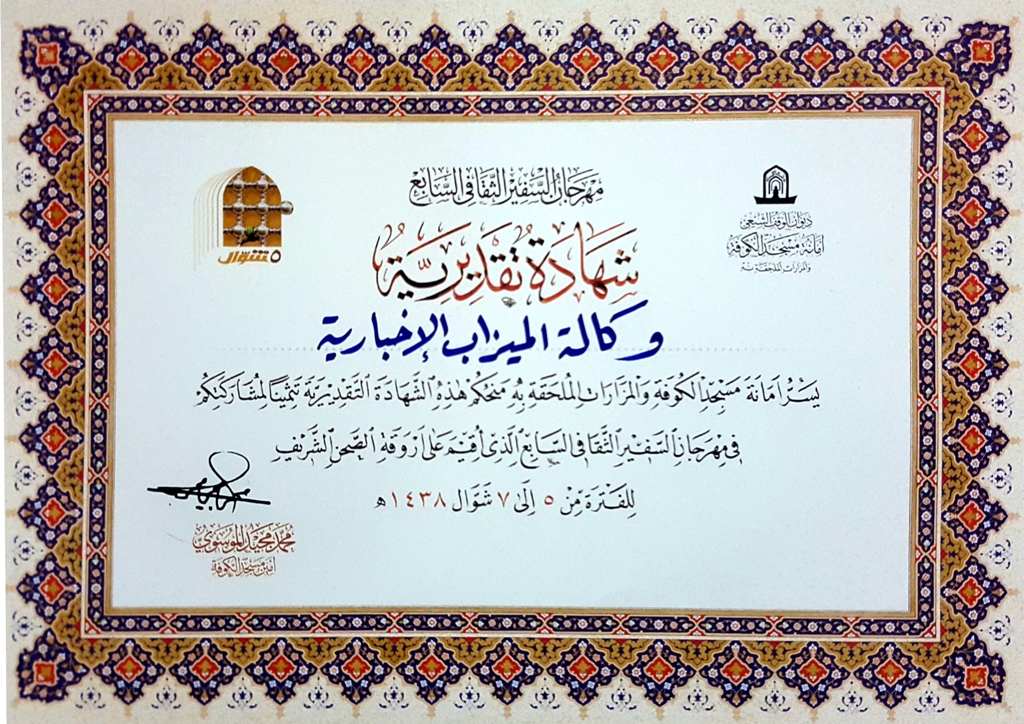 مهرجان السفير الثقافي السابع
ديوان الوقف الشيعي
امانة مسجد الكوفة
والمزارات الملحقة به
٥ شوال
شَهَادَة تَقْدِيرِيَّة
وكالة الميزاب الإخبارية
يسر امانة مسجد الكوفة والمزارات الملحقة به منحكم هذه الشهادة التقديرية تثميناً لمشاركتكم
في مهرجان السفير الثقافي السابع الذي أقيم على أروقة الصحن الشريف
للفترة من ٥ إلى ٧ شوال ١٤٣٨ هـ
محمد مجيد الموسوي
امين مسجد الكوفة